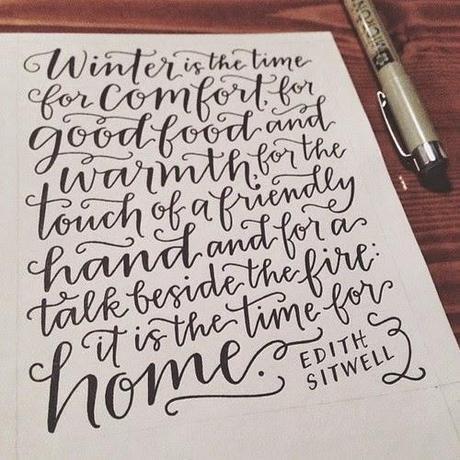 Winter is the time
for comfort, for
good food and
warmth, for the
touch of a friendly
hand and for a
talk beside the fire:
it is the time for
home.
EDITH
SITWELL
MICRON